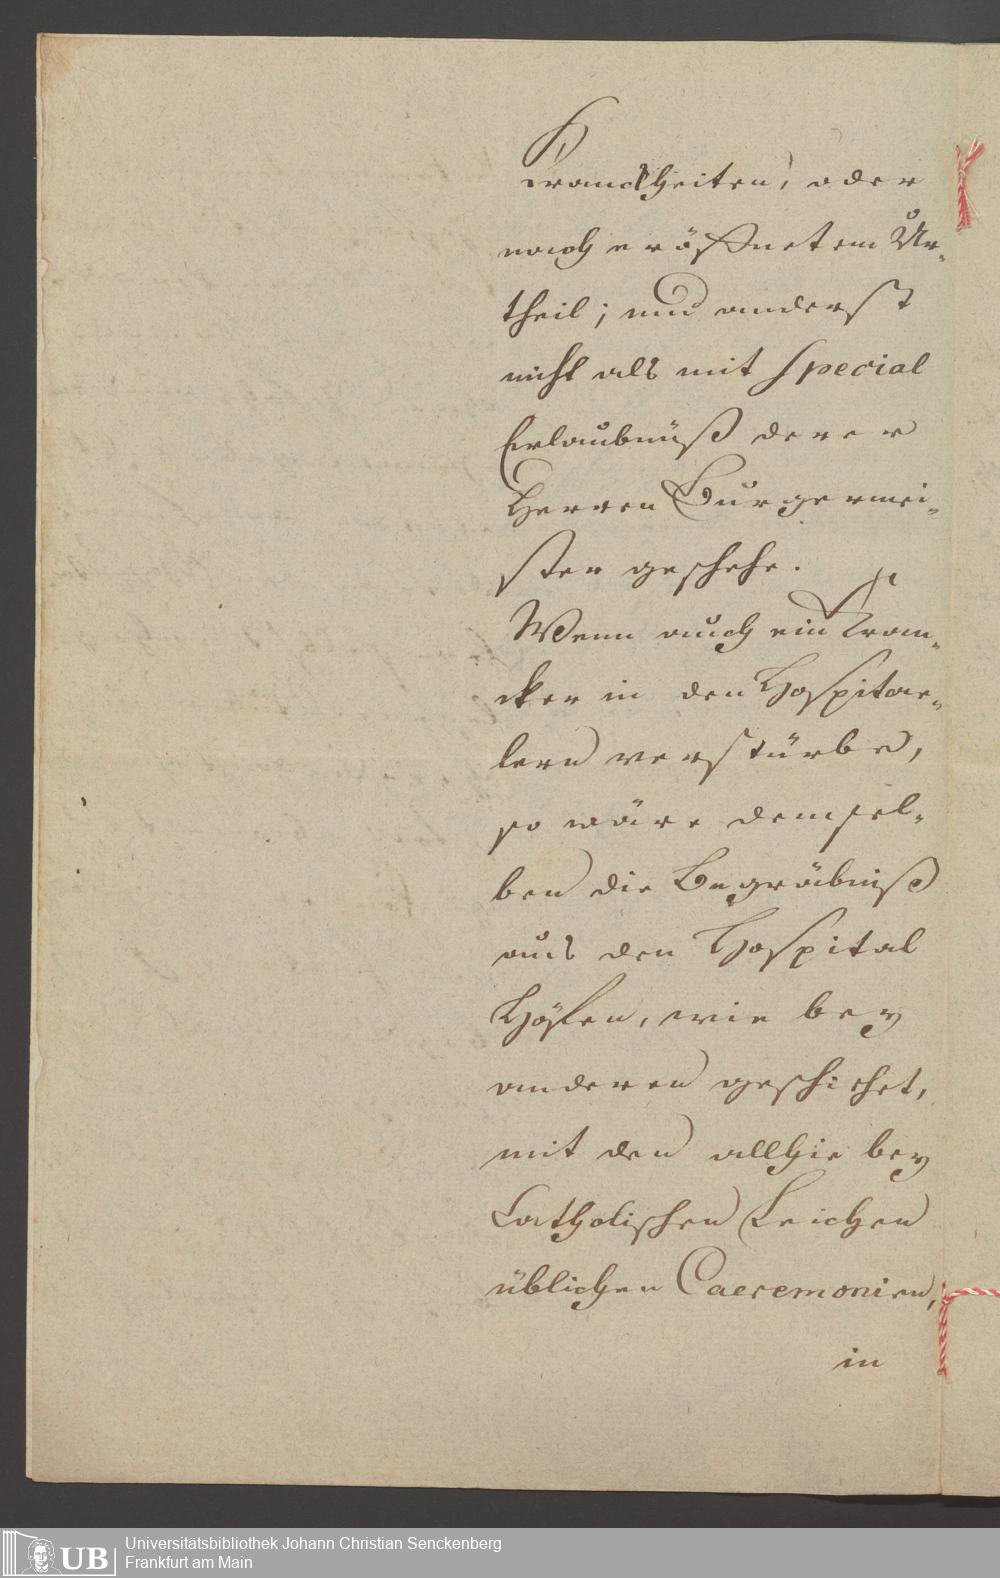 Kranckheiten, oder
nach eröffnetem Ur-
theil; und anderst
nicht als mit special
Erlaubnüß derer
Herren Burgermei-
ster geschehe.
Wenn auch ein Kran-
cker in den Hospitae-
lern verstürbe,
so wäre demsel-
ben die Begräbniß
aus den Hospital
Höfen, wie bey
anderen geschiehet,
mit den allhie bey
Catholischen Leichen
üblichen Caeremonien,
in
UB
Universitätsbibliothek Johann Christian Senckenberg
Frankfurt am Main